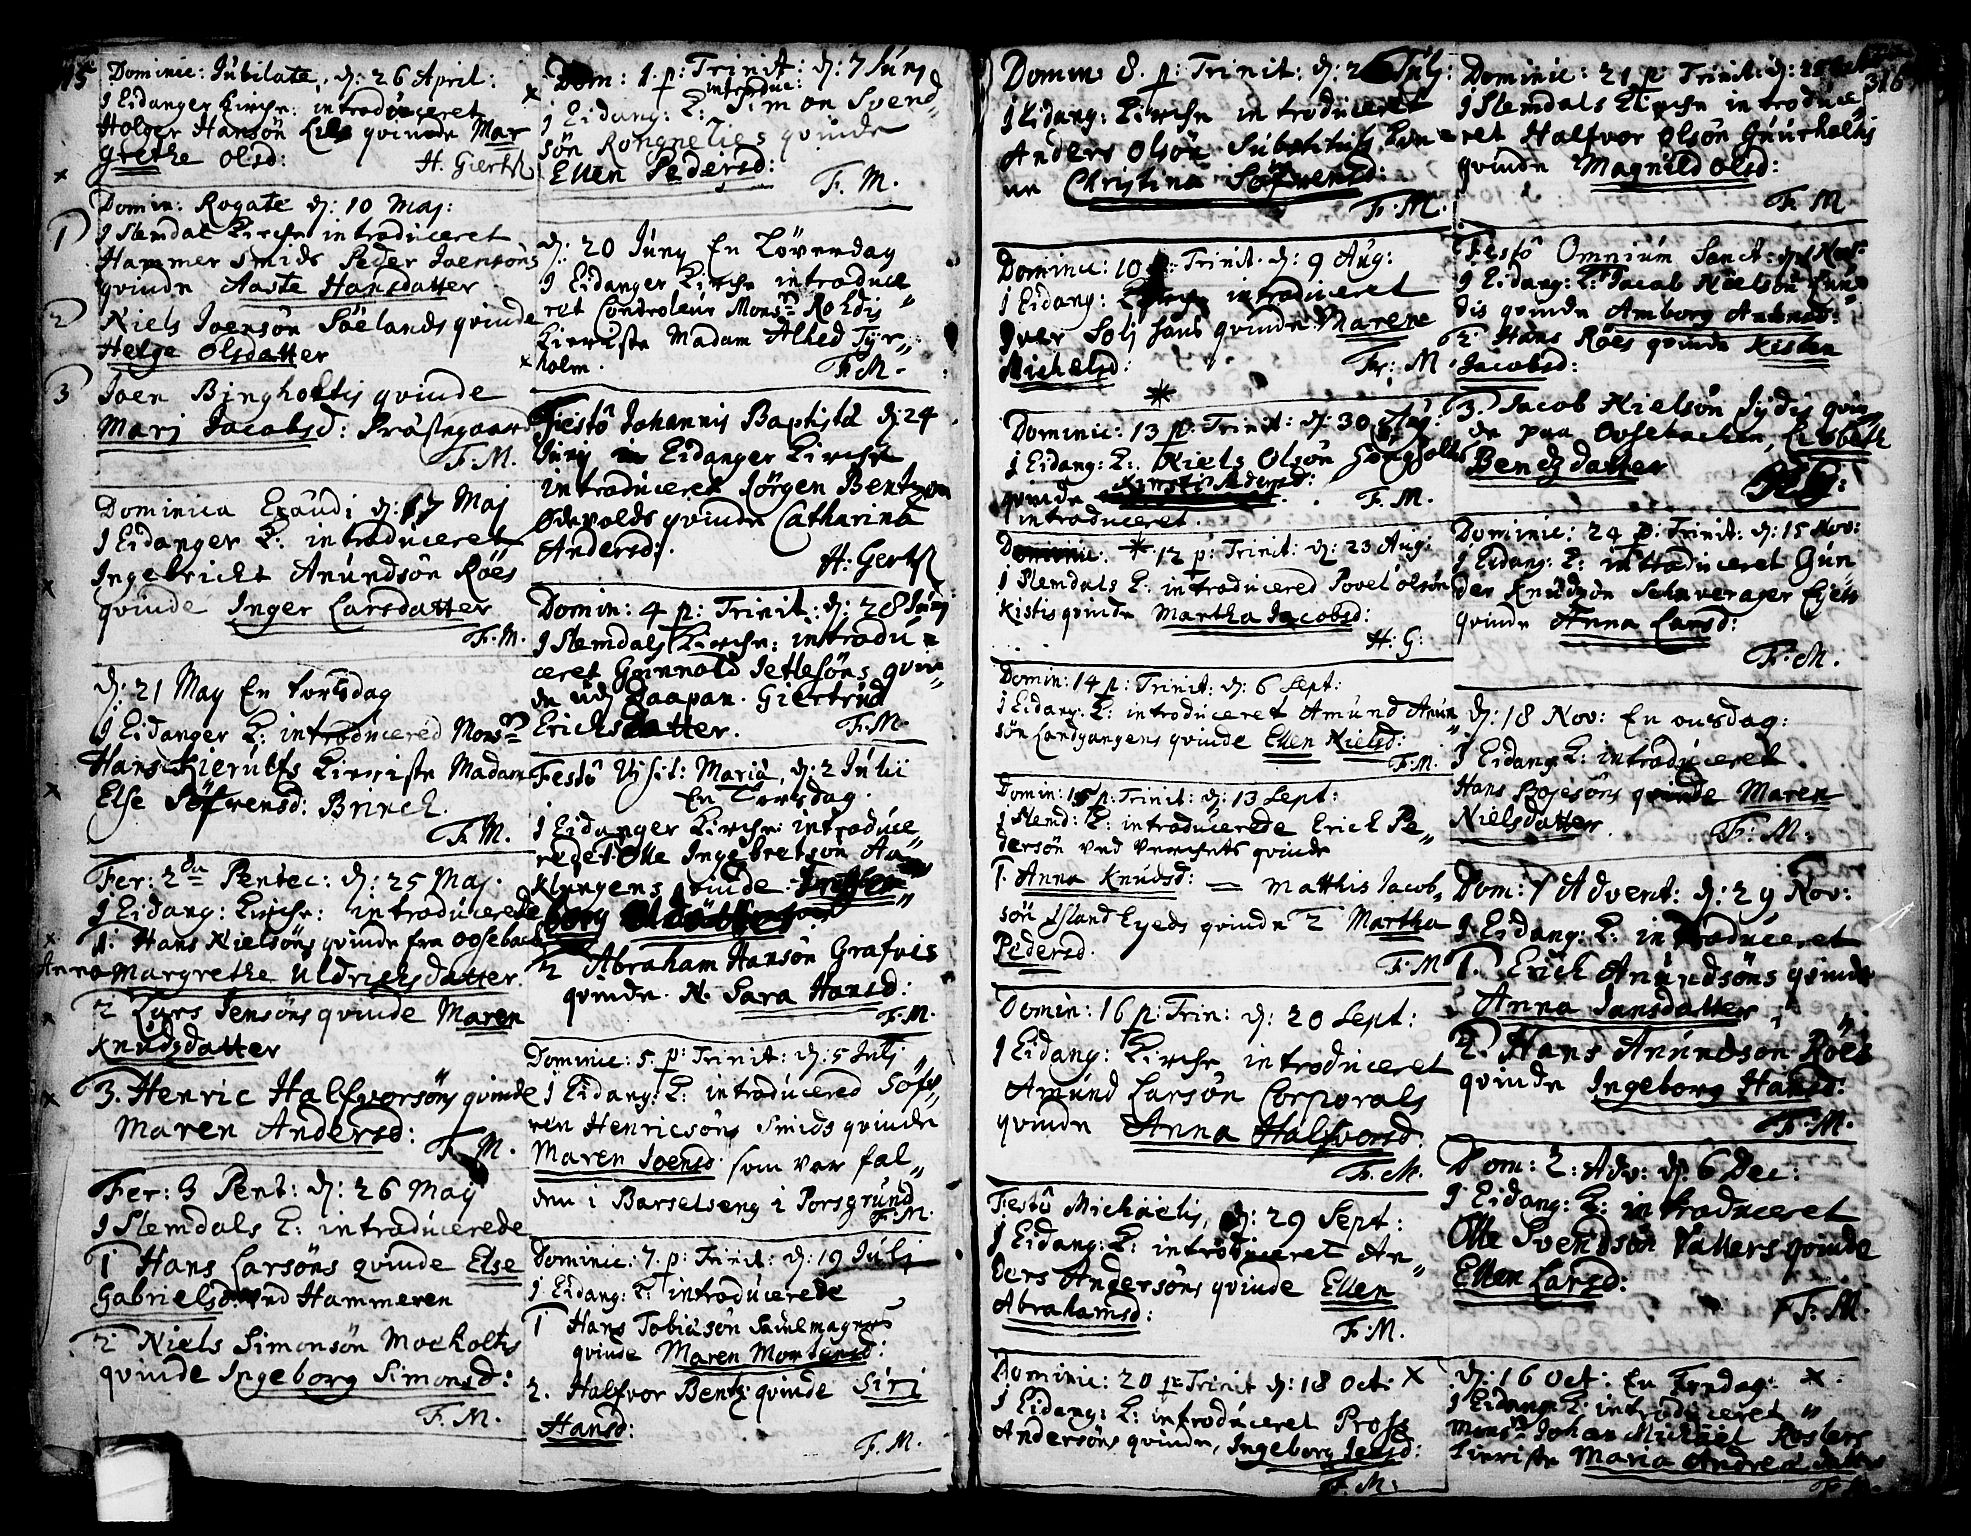 15
Dominic: Jubilate, d: 26 April:
J Eidanger Kirche: introduceret
Holger Hansøn qvinde Mar
grethe Olsd:
H. Giertz
Domin: Rogate d: 10 Maj:
1 J Slemdal Kirche introduceret
Hammer Smids Peder Joensøns
qvinde Aaste Hansdatter
2 Niels Joensøn Söelands qvinde
Helge Olsdatter
3 Joen Bingholtis qvinde
Marj Jacobsd: Præstegaard
F. M.
Dominica Exaudi d: 17 Maj
J Eidanger K: introduceret
Ingebricht Anundsøn Röes
qvinde Inger Larsdatter
F. M.
d: 21 May En torsdag
J Eidanger K: introducered Monsr
Hans Hierulfs Kieriste Madame
Else Søfrensd: Brinch.
F. M.
Fer: 2da Pentec: d: 25 Maj.
J Eidang: Kirche: introducerede
1. Hans Nielsøns qvinde fra Ogsebach
Anna Margrethe Uldrichsdatter.
2 Lars Jensøns qvinde Maren
Knudsdatter
3. Henric Halfvorsøns qvinde
Maren Andersd:
F. M.
Fer: 3 Pent: d: 26 May
J Slemdals K: introducerede
1 Hans Larsøns qvinde Else
Gabrielsd: ved Hammeren
2 Niels Simonsøn Moeholtis
qvinde Ingeborg Simonsd:
F. M.
Dom: 1. p: Trinit: d: 7 Junj
introduc:
J Eidang: K: Simon Svend
søn Rongnelies qvinde
Ellen Pedersd:
F. M.
d: 20 Juny En Løverdag
J Eidanger Kirche introduce
ret Controleur Monsr
Kieriste Madam Alhed Tyr
holm.
F. M.
Festô Johannis Baptistæ d: 24
Junj in Eidanger Kirche
introduceret Jörgen Bentzon
Ødevolds qvinde Catharina
Andersd:
H: Gertz
Domin: 4 p: Trinit: d: 28 Junj
J Slemdals Kirche: introdu
ceret Gunnold Jetlesøns qvin
de udj Raapan. Giertrud
Erichsdatter.
F. M.
Festô Visit: Mariæ, d: 2 Julii
En Torsdag.
J Eidanger Kirche: introduce
redet Olle Ingebretsøn
Klungens qvinde
borg
2 Abraham Hansøn Grafvis
qvinde. N. Sara Hansd:
F. M.
Dominic: 5. p: Trinit: d: 5 Julj
J Eidang: K: introducered Söf
ren Henricsøns Smids qvinde
Maren Joensd: som var fal
den i Barselseng i Porsgrund
F. M.
Dominic: 7. p: Trinit: d: 19 Julj
J Eidang: K: introducerede
1 Hans Tobiasøn Sadelmagers
qvinde Maren Mortensd:
2. Halfvor Bentz: qvinde Siri
Hansd:
F. M.
Domin 8. p: Trinit: d: 26 Julj:
J Eidang: Kirche introduceret
Anders Olsøn Substituts Kone
Christina Søfrensd:
F. M.
Dominic: 10 p: Trinit. d: 9 Aug:
J Eidang: Kirche introduceret
Iver Solj qvinde Maren
Michelsd:
Fr: M
Dominic: 13 p: Trinit: d: 30 Aug:
J Eidang: K: Niels Olsøn
qvinde Kirsti Pedersd:
F. M.
introduceret.
Dominic: 12 p: Trinit: d: 23 Aug:
J Slemdals K: introducered Povel Olsøn
Kistis qvinde Martha Jacobsd:
H: G:
Domin: 14 p: Trinit: d: 6 Sept:
J Eidang: K: introduceret Amund Anun
søn Landgangens qvinde Ellen Nielsd:
F. M.
Domin: 15 p: Trinit: d: 13 Sept:
J Slemd: K: introducerede Erich Pe
dersøn ved Verchets qvinde
1. Anna Knudsd: = Matthis Jacob
søn Island Eyeds qvinde 2 Martha
Pedersd.
F. M
Domin: 16 p: Trin: d: 20 Sept:
J Eidang: Kirche introduceret
Amund Larsøn Corporals
qvinde Anna Halfvorsd.
F. M.
Festô Michaelis, d: 29 Sept:
J Eidang: K: introduceret An
ders Andersøns qvinde Ellen
Abrahamsd:
F. M.
Dominic: 20 p: Trinit d: 18 Oct: x
J Eidang: K: introduceret Profs
Andersøns qvinde, Ingeborg Jensd:
F. M:
316
Dominic: 21 p: Trinit: d: 25 Oct
J Slemdals Kirche introduce
ret Halfvor Olsøn Guurholtis
qvinde Magnild Olsd:
F. M
Festô Omnium Sanct: d: 1 Nov:
J Eidang: K: Jacob Nielsøn
dis qvinde Amborg
2. Hans Röes qvinde Kisten
Jacobsd:
3. Jacob Nielsøn Jydis qvin
de paa Ovsebachen, Lisbeth
Bendzdatter
H G:
Dominic: 24 p: Trinit: d: 15 Nov:
J Eidang: K: introduceret Gun
der Knudsøn Schaverager Ejes
qvinde Anna Larsd:
F. M.
d: 18 Nov: En onsdag:
J Eidang: K: introduceret
Hans Bojesøns qvinde Maren
Nielsdatter.
F. M.
Dom: 1 Advent: d: 29 Nov:
J Eidang: K: introduceret
1. Erich Anundsøns qvinde
Anna Jansdatter
2. Hans Anundsøn Röes
qvinde Ingeborg Hansd:
F. M.
Dom: 2: Adv: d: 6 Dec:
J Eidang: K: introduceret
Olle Svendsøn Vallers qvinde
Ellen Larsd:
F. M.
d: 16 Oct: En Fredag: x.
J Eidang: K: introduceret
Monsr Johan Michael Roslers
Kieriste Maria Andrea
F. M.